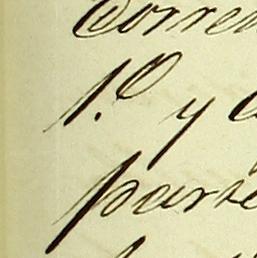 Corre
1.º y
parte